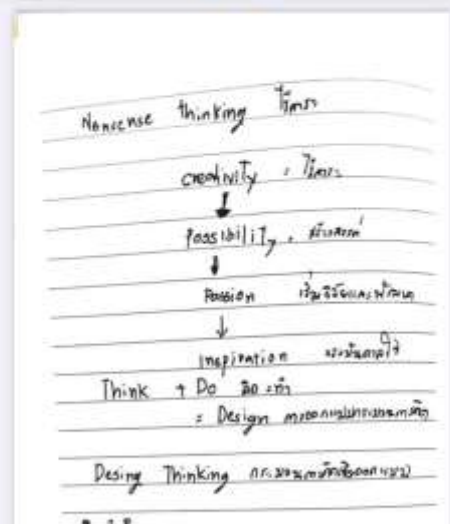 Nonsense thinking ไร้สาระ
creativity = ไร้สาระ
Possibility = สร้างสรรค์
Passion เริ่มวิจัยและพัฒนา
Inspiration แรงบันดาลใจ
Think + Do คิด + ทำ
= Design การออกแบบกระบวนการคิด
Desing Thinking กระบวนการคิดเชิงออกแบบ